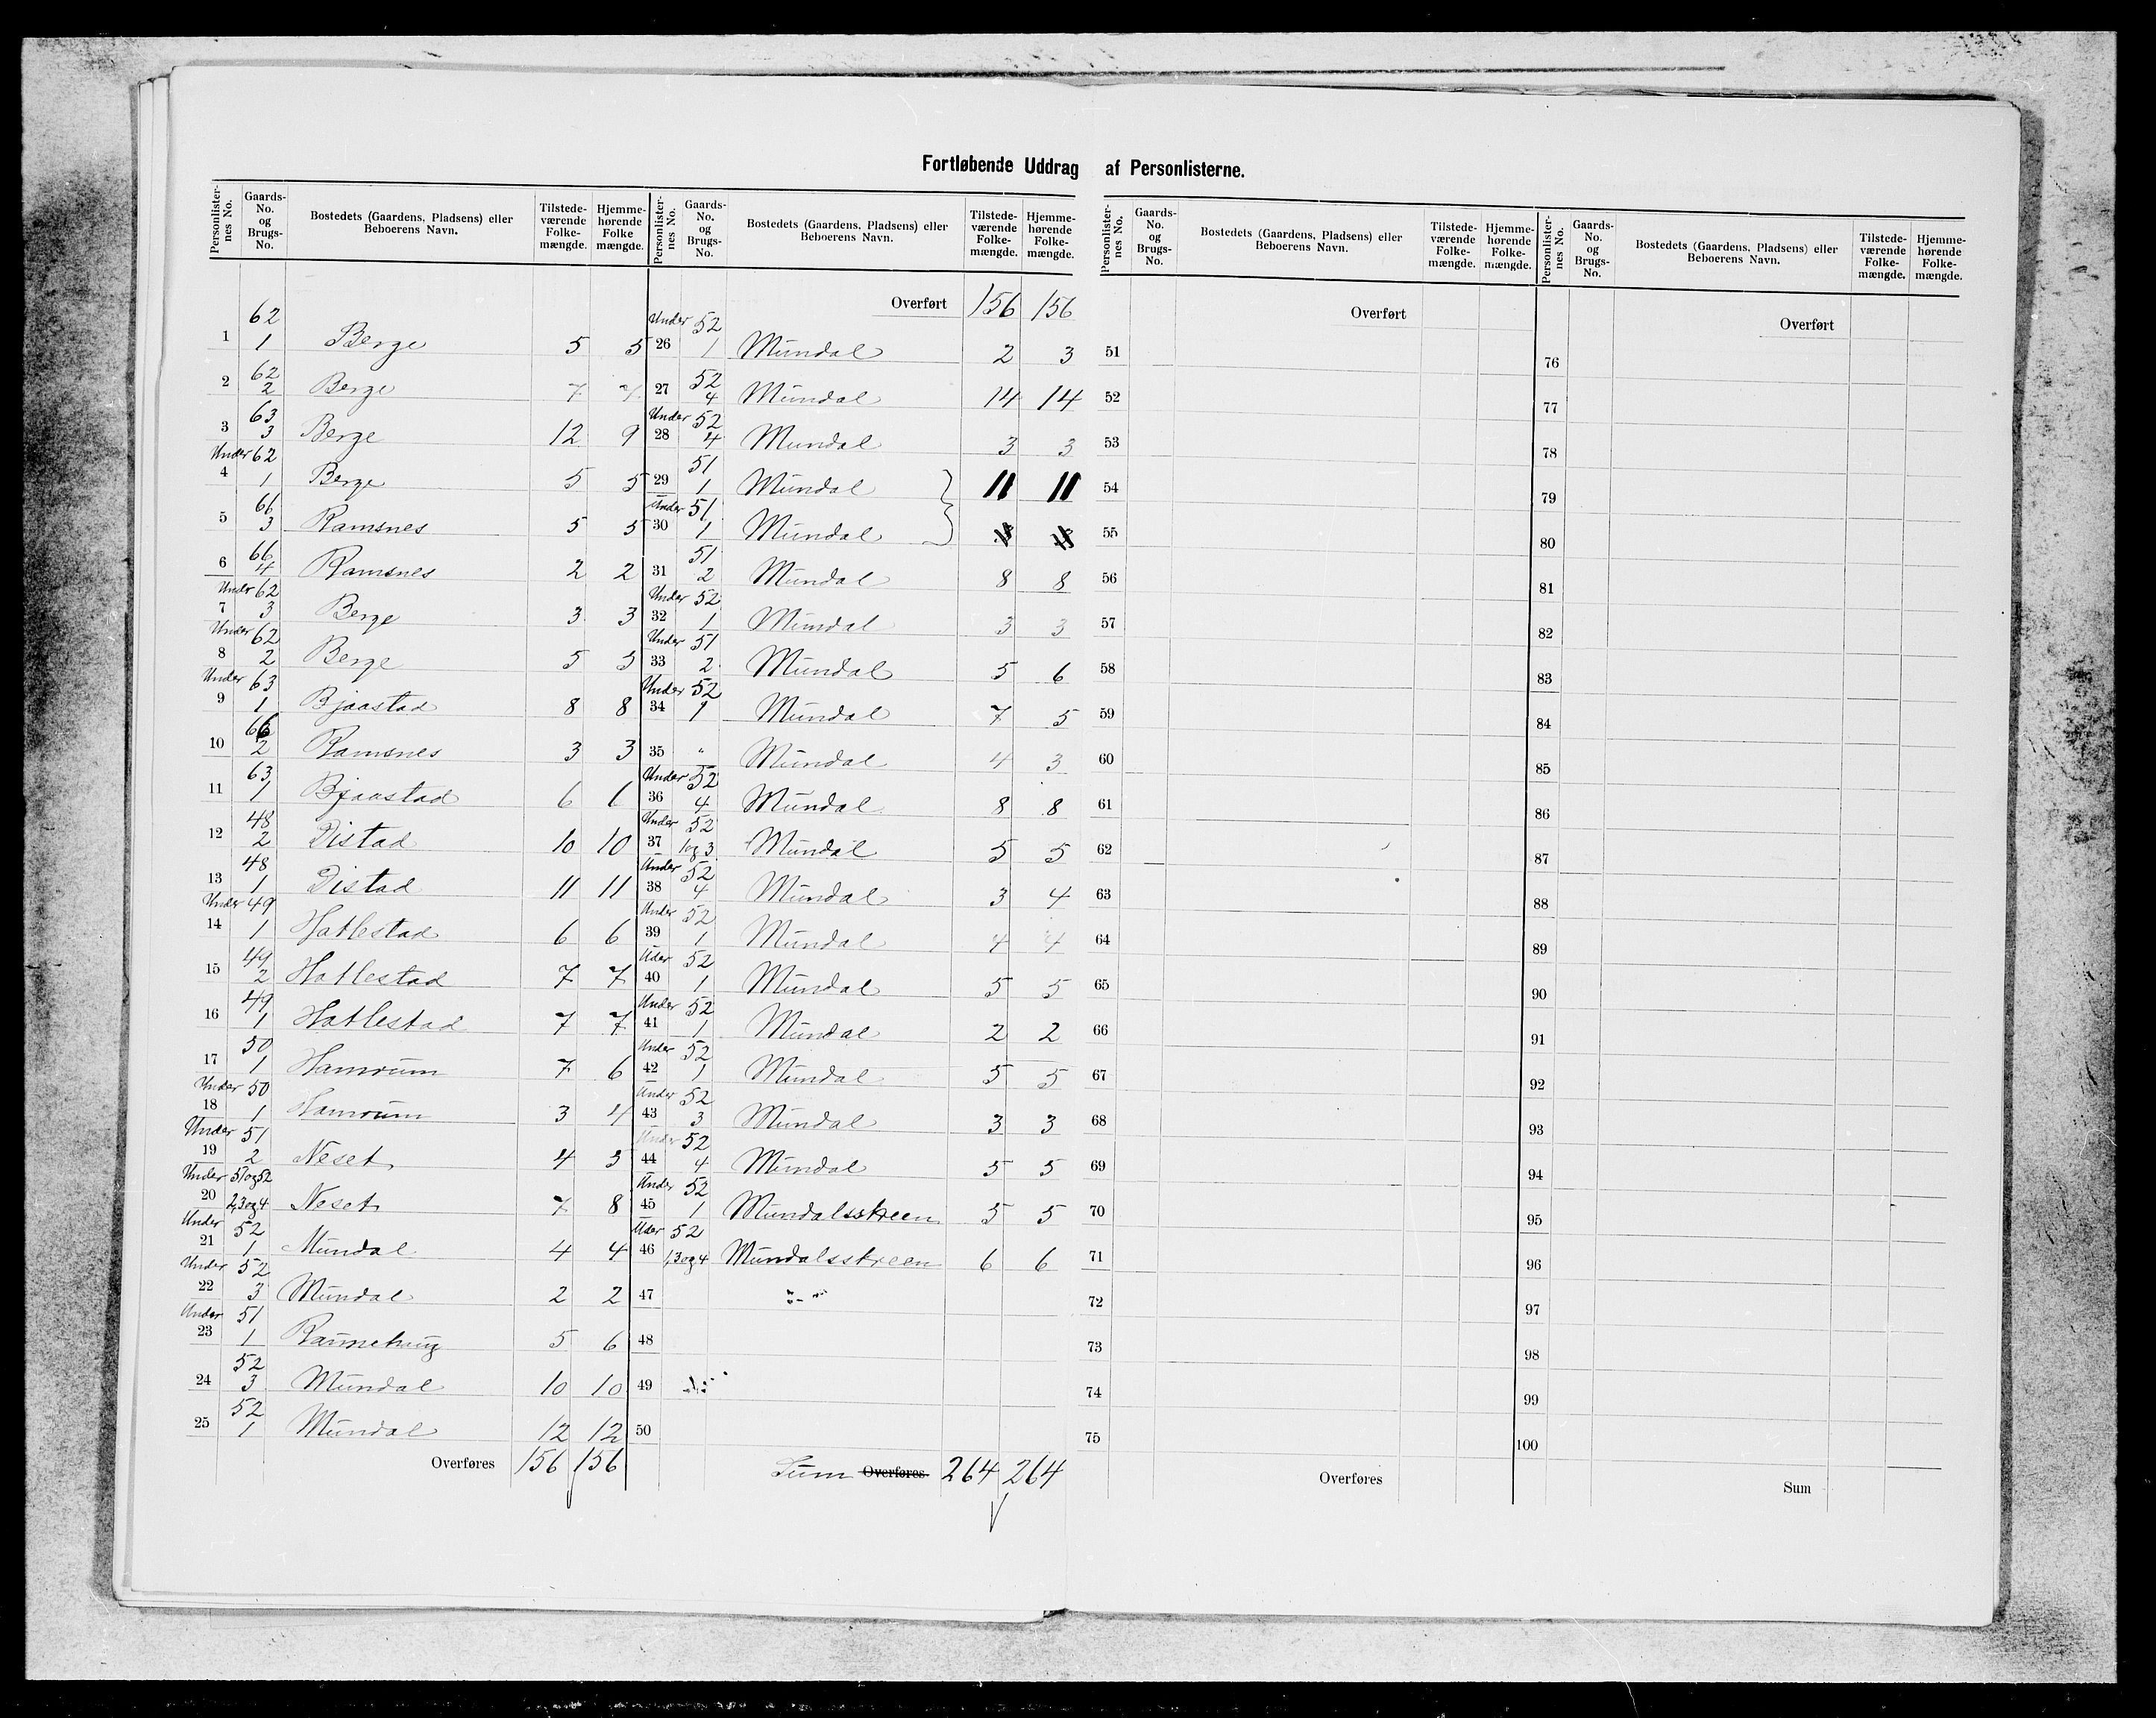 Fortløbende Uddrag af Personlisterne.
Personlisternes No. Gaards-No. og Brugs-No. Bostedets (Gaardens, Pladsens) eller Beboerens Navn. Tilstedeværende Folkemængde. Hjemmehørende Folkemængde.
1 62 1 Berge 5 5
2 62 2 Berge 7 7
3 63 3 Berge 12 9
4 Under 62 1 Berge 5 5
5 66 3 Ramsnes 5 5
6 66 4 Ramsnes 2 2
7 Under 62 3 Berge 3 3
8 Under 62 2 Berge 5 5
9 Under 63 1 Bjaastad 8 8
10 66 2 Ramsnes 3 3
11 63 1 Bjaastad 6 6
12 48 2 Distad 10 10
13 48 1 Distad 11 11
14 Under 49 1 Hatlestad 6 6
15 49 2 Hatlestad 7 7
16 49 1 Hatlestad 7 7
17 50 1 Hamrum 7 6
18 Under 50 1 Hamrum 3 4
19 Under 51 2 Neset 4 5
20 Under 51og52 2,3og4 Neset 7 8
21 Under 52 1 Mundal 4 4
22 Under 52 3 Mundal 2 2
23 Under 51 1 5 6
24 52 3 Mundal 10 10
25 52 1 Mundal 12 12
Overføres 156 156
Personlisternes No. Gaards-No. og Brugs-No. Bostedets (Gaardens, Pladsens) eller Beboerens Navn. Tilstedeværende Folkemængde. Hjemmehørende Folkemængde.
Overført 156 156
26 Under 52 1 Mundal 2 3
27 52 4 Mundal 14 14
28 Under 52 4 Mundal 3 3
29 51 1 Mundal 11 11
30 Under 51 1 Mundal
31 51 2 Mundal 8 8
32 Under 52 1 Mundal 3 3
33 Under 51 2 Mundal 5 6
34 Under 52 1 Mundal 7 5
35 " Mundal 4 3
36 Under 52 4 Mundal 8 8
37 Under 52 1og3 Mundal 5 5
38 Under 52 4 Mundal 3 4
39 Under 52 1 Mundal 4 4
40 Uder 52 1 Mundal 5 5
41 Under 52 1 Mundal 2 2
42 Under 52 1 Mundal 5 5
43 Under 52 3 Mundal 3 3
44 Under 52 4 Mundal 5 5
45 Under 52 1 Mundalsskreen 5 5
46 Uder 52 1,3og4 Mundalsskreen 6 6
47
48
49
50
Sum Overføres 264 264
Personlisternes No. Gaards-No. og Brugs-No. Bostedets (Gaardens, Pladsens) eller Beboerens Navn. Tilstedeværende Folkemængde. Hjemmehørende Folkemængde.
Overført
51
52
53
54
55
56
57
58
59
60
61
62
63
64
65
66
67
68
69
70
71
72
73
74
75
Overføres
Personlisternes No. Gaards-No. og Brugs-No. Bostedets (Gaardens, Pladsens) eller Beboerens Navn. Tilstedeværende Folkemængde. Hjemmehørende Folkemængde.
Overført
76
77
78
79
80
81
82
83
84
85
86
87
88
89
90
91
92
93
94
95
96
97
98
99
100
Sum